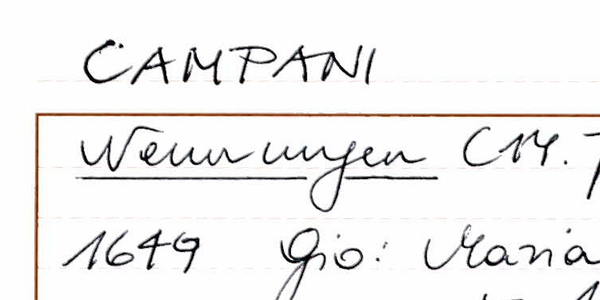 CAMPANI
Nennungen C14.
1649 Gio: Maria